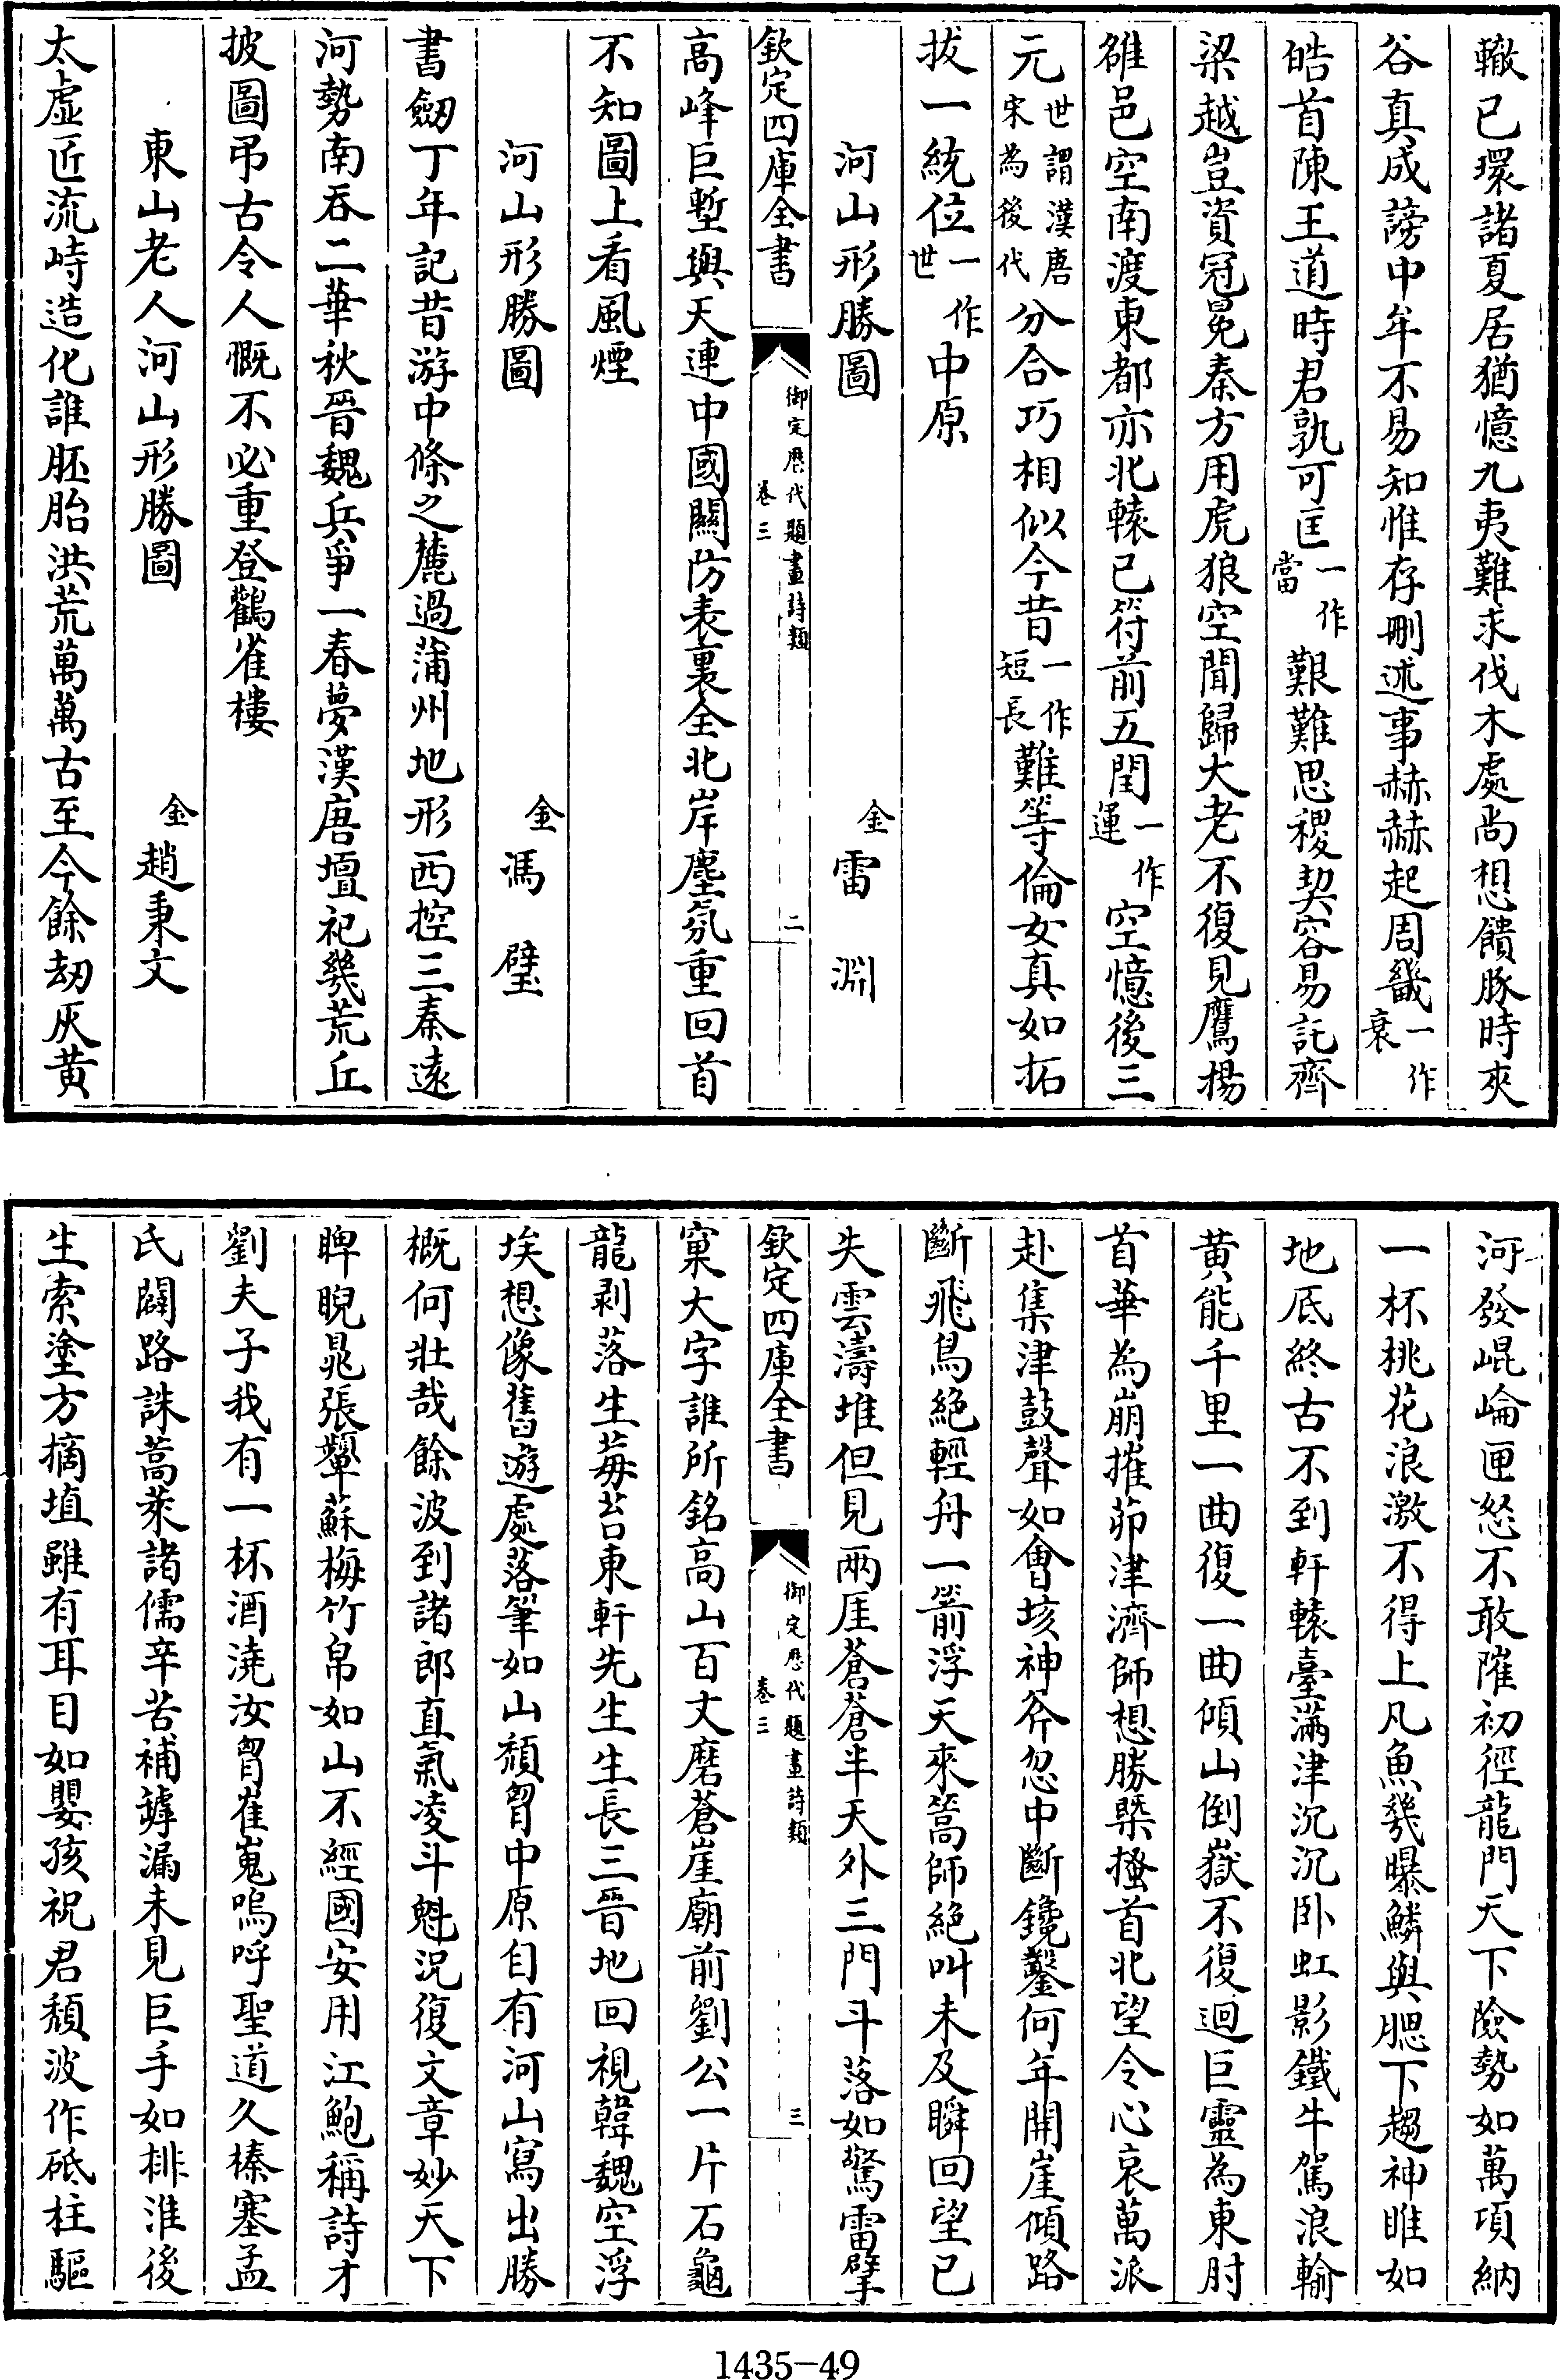 轍已環諸夏居猶憶九夷難求伐木處尚想饋豚時夾
谷真成謗中牟不易知惟存刪述事赫赫起周畿一作衰
皓首陳王道時君孰可匡一作當艱難思稷契容易託齊
梁越豈資冠冕秦方用虎狼空聞歸大老不復見鷹揚
雒邑空南渡東都亦北轅已符前五閏一作運空憶後三
元世謂漢唐宋為後代分合巧相似今昔一作短長難等倫女真如拓
拔一統位一作世中原
河山形勝圖 金 雷淵
欽定四庫全書 御定歷代題畫詩類 卷三 二
高峰巨塹與天連中國關防表裏全北岸塵氛重回首
不知圖上看風煙
河山形勝圖 金 馮璧
書劒丁年記昔游中條之麓過蒲州地形西控三秦遠
河勢南吞二華秋晉魏兵爭一春夢漢唐壇祀幾荒丘
披圖弔古令人慨不必重登鸛雀樓
東山老人河山形勝圖 金 趙秉文
太虛匠流峙造化誰胚胎洪荒萬萬古至今餘劫灰黃
河發崐崘匣怒不敢隨初徑龍門天下險勢如萬頃納
一杯桃花浪激不得上凡魚幾曝鱗與腮下趨神雎如
地底終古不到軒轅臺滿津沉沉卧虹影鐵牛駕浪輸
黃能千里一曲復一曲傾山倒嶽不復迴巨靈為東肘
首華為崩摧茆津濟師想勝槩搔首北望令心哀萬派
赴集津鼓聲如會垓神斧忽中斷鑱鑿何年開崖傾路
斷飛鳥絕輕舟一箭浮天來篙師絕叫未及瞬回望已
失雲濤堆但見兩厓蒼蒼半天外三門斗落如驚雷擘
欽定四庫全書 御定歷代題畫詩類 卷三 三
窠大字誰所銘高山百丈磨蒼崖廟前劉公一片石龜
龍剥落生莓苔東軒先生生長三晉地回視韓魏空浮
埃想像舊遊處落筆如山頹胷中原自有河山寫出勝
概何壯哉餘波到諸郎直氣凌斗魁況復文章妙天下
睥睨晁張鞏蘇梅竹帛如山不經國安用江鮑稱詩才
劉夫子我有一杯酒澆汝胷崔嵬嗚呼聖道久榛塞孟
氏闢路誅蒿萊諸儒辛苦補罅漏未見巨手如排淮後
生索塗方摘埴雖有耳目如嬰孩祝君頹波作砥柱驅
1435-49